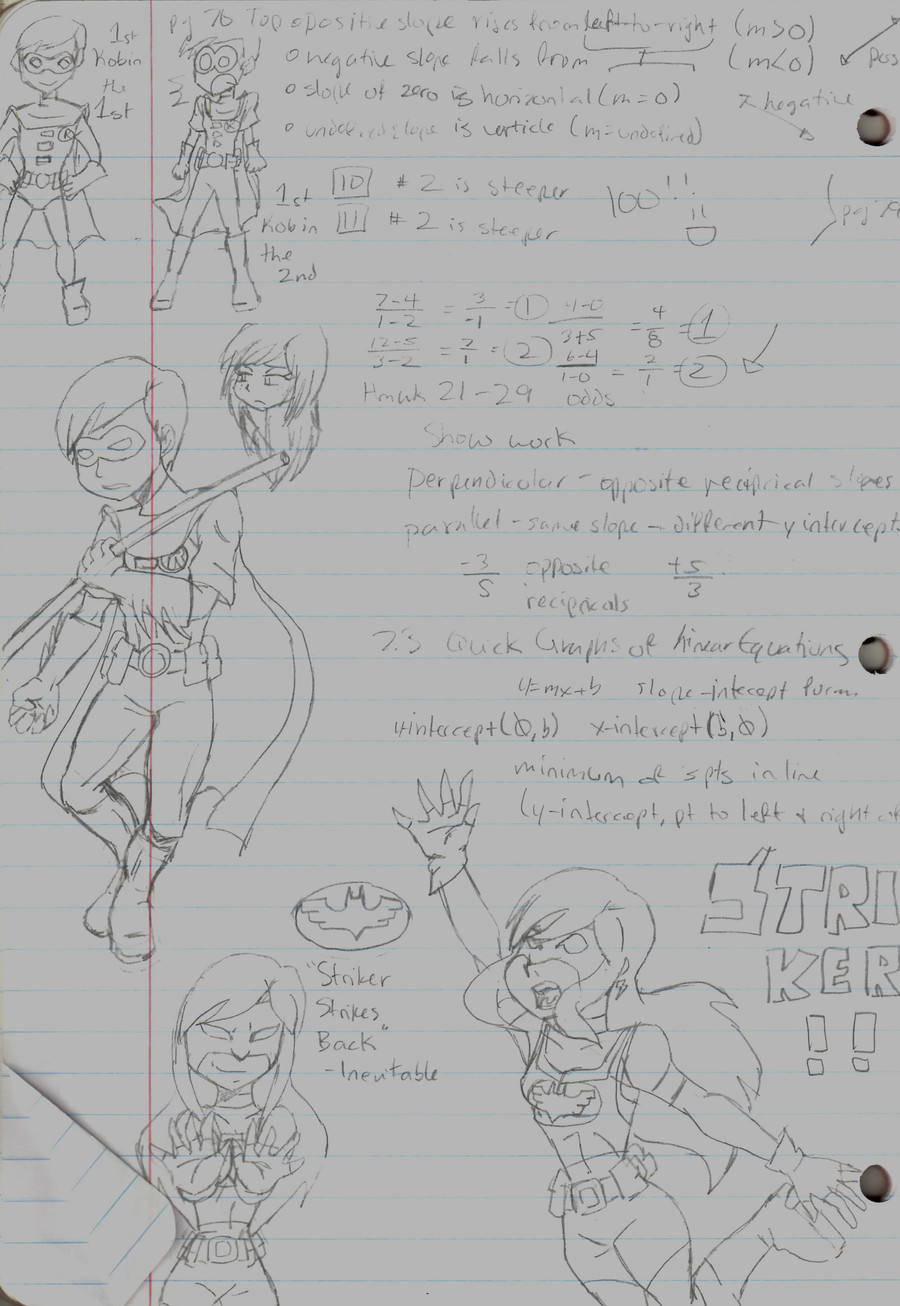 pg 76 Top o positive slope rises from left-to-right (m>0)
o negative slope falls from (m<0)
pos
o slope of zero is horizontal (m=0)
negative
o undefined slope is verticle (m=undefined)
1st
Robin
the
1st
1st
Robin
the
2nd
10 #2 is steeper
11 #2 is steeper
100!!
7-4/1-2 = 3/-1 = 1
4-0/3+5 = 4/8 = 1
12-5/3-2 = 7/1 = 2
6-4/1-0 = 2/1 = 2
Hmwk 21-29 odds
Show work
perpendicular - opposite reciprical slopes
parallel - same slope - different y intercepts
-3/5 opposite +5/3
recipricals
7.3 Quick Graphs of linear Equations
y=mx+b slope-intecept form
y-intercept (0,b) x-intercept (b,0)
minimum of 3 pts in line
(y-intercept, pt to left & right of
STRI
KER
!!
"Striker
Strikes
Back"
-Inevitable